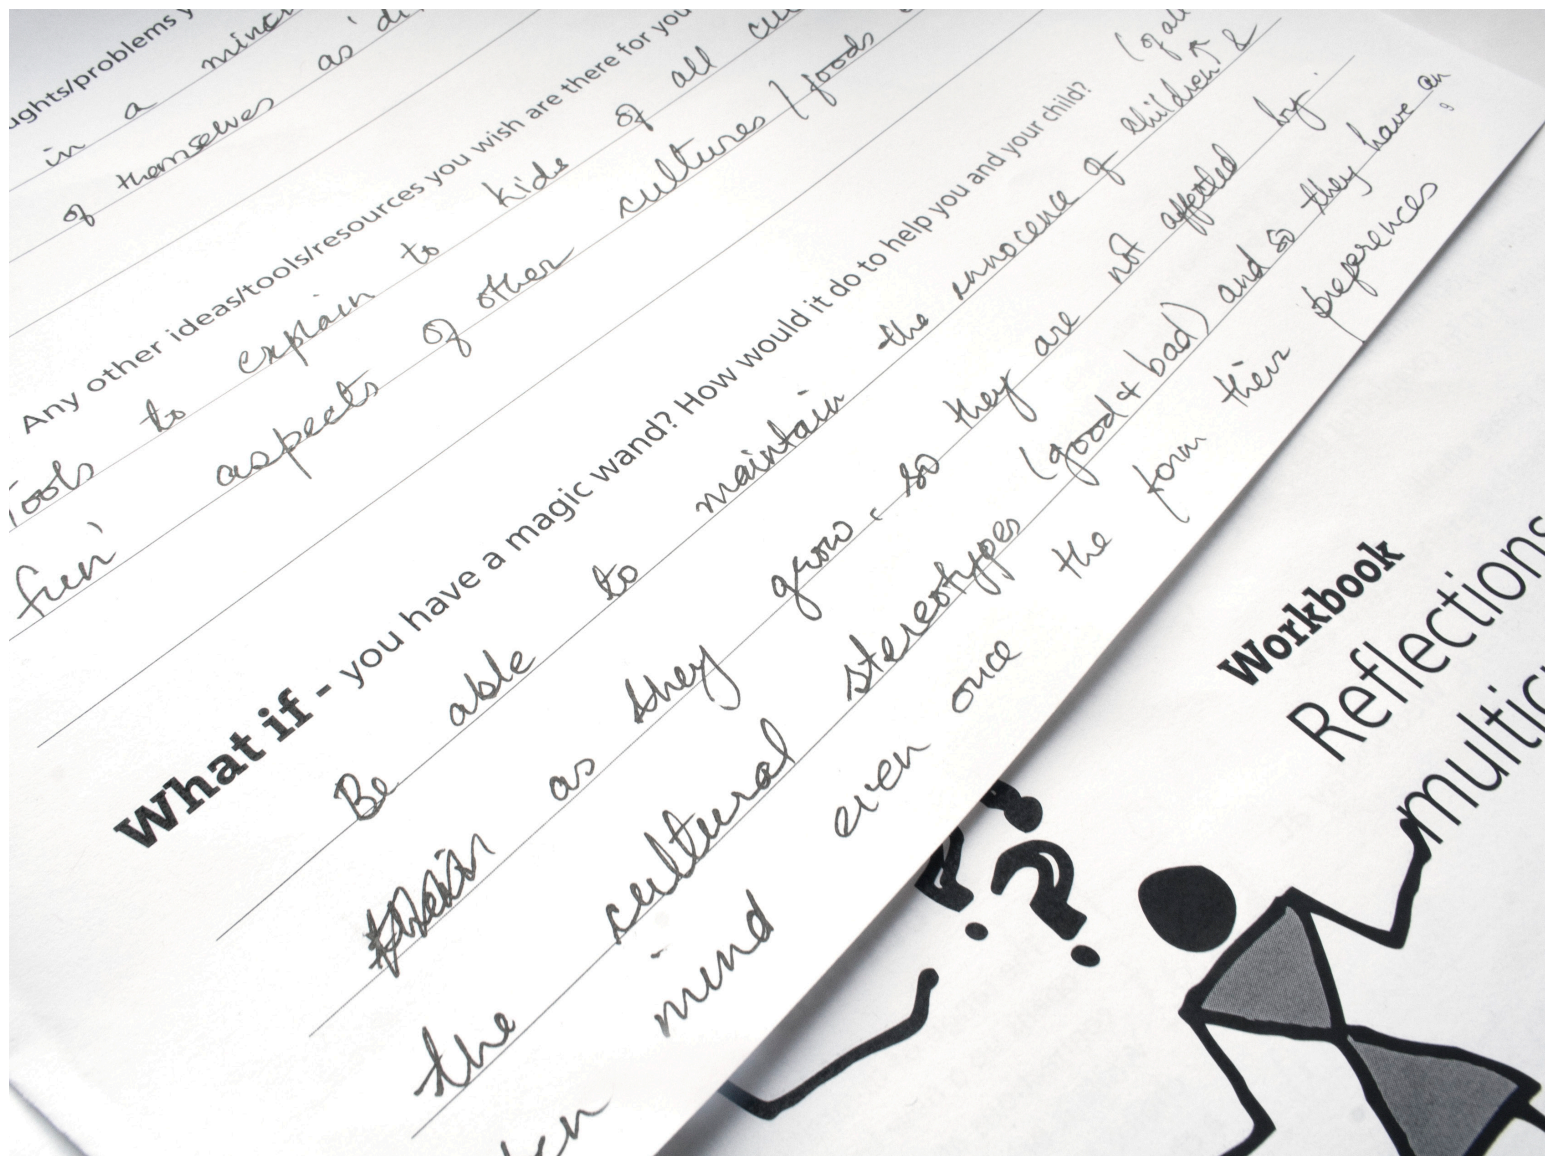 ughts/problems y
in a minor
of themselves as 'di
Any other ideas/tools/resources you wish are there for you
Tools to explain to kids of all cu
fun' aspects of other cultures / foods
What if - you have a magic wand? How would it do to help you and your child?
Be able to maintain the innocence of children &
(of all
as they grow, so they are not affected by
the cultural stereotypes (good & bad) and so they have an
open mind even once the form their preferences
Workbook
Reflections
multicu